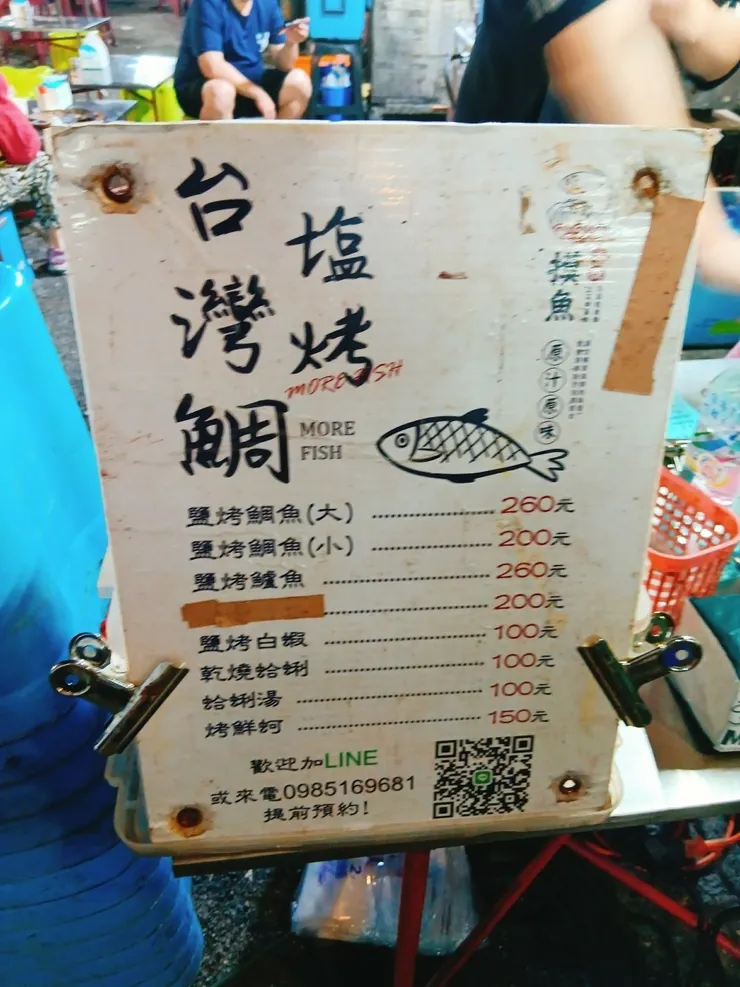 台灣鯛
塩烤
MORE FISH
MORE
FISH
摸魚
原汁原味
鹽烤鯛魚(大) 260元
鹽烤鯛魚(小) 200元
鹽烤鱸魚 260元
200元
鹽烤白蝦 100元
乾燒蛤蜊 100元
蛤蜊湯 100元
烤鮮蚵 150元
歡迎加LINE
或來電0985169681
提前預約!